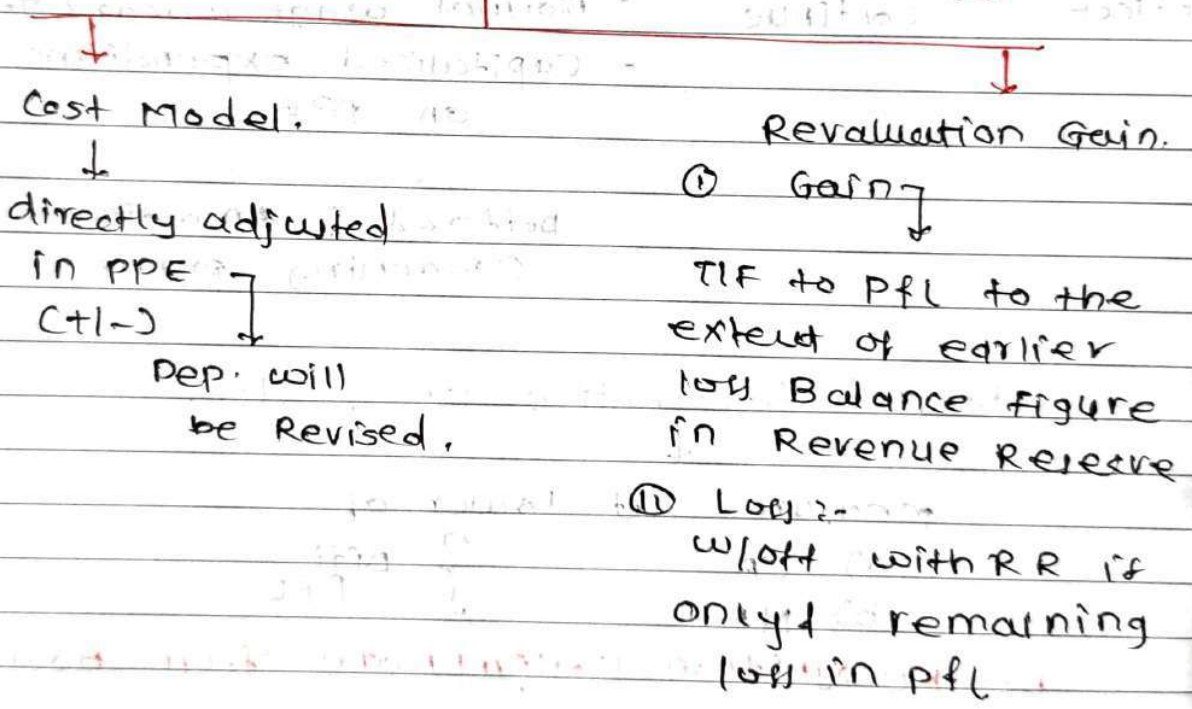 Cost Model.
directly adjusted
in PPE
(+/-)
Dep. will
be Revised.
Revaluation Gain.
① Gain
T/F to P&L to the
extent of earlier
loss Balance figure
in Revenue Reserve
⑪ Loss :-
w/off with RR if
only & remaining
loss in P&L